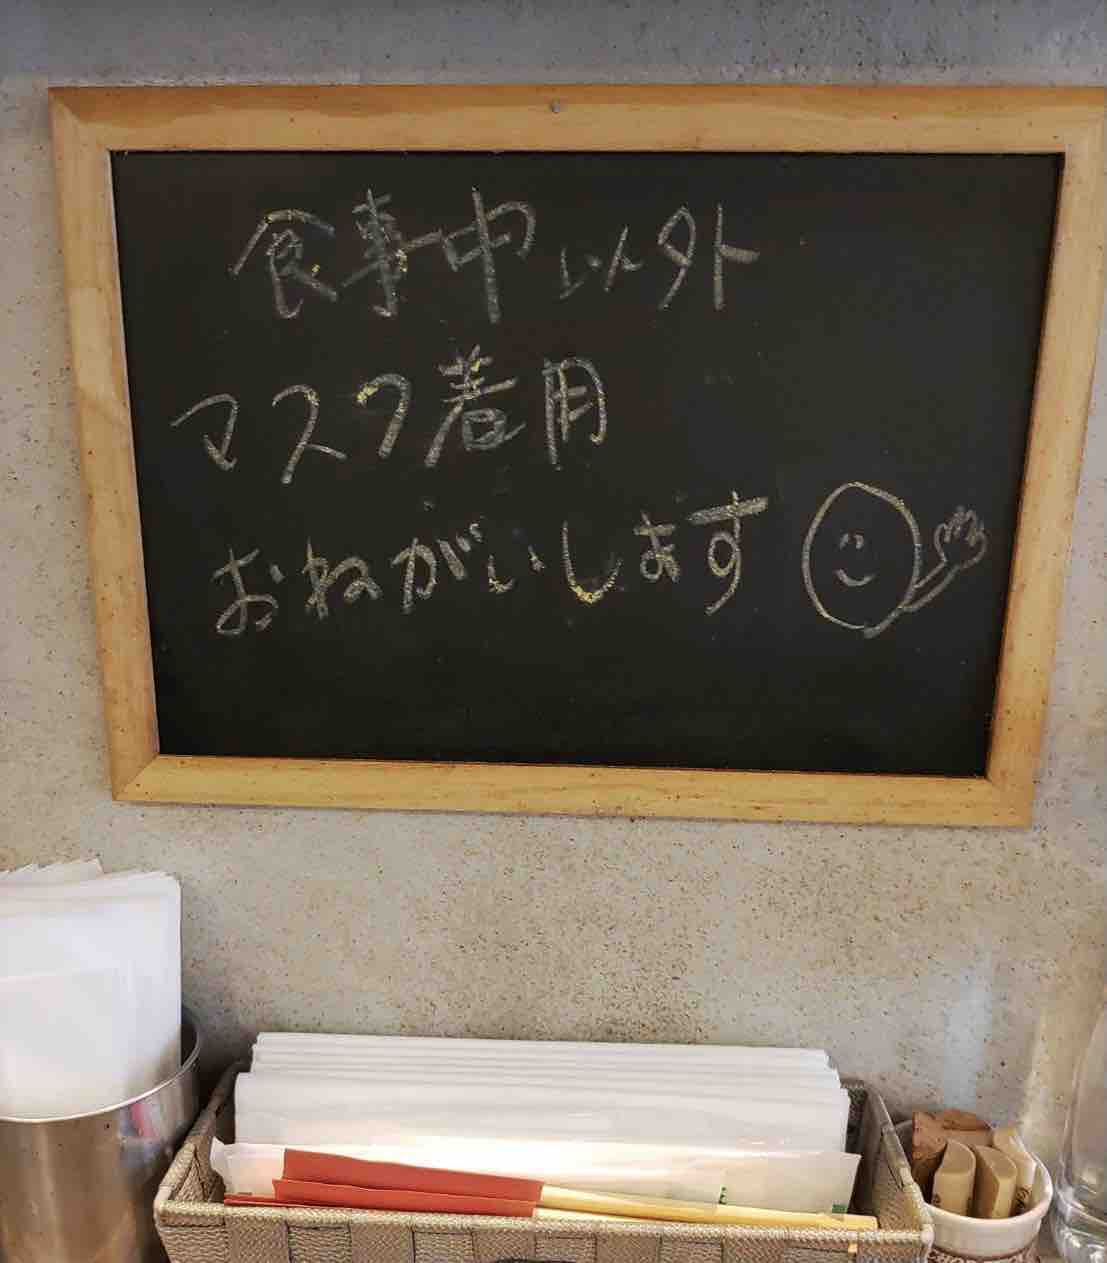 食事中以外
マスク着用
おねがいします